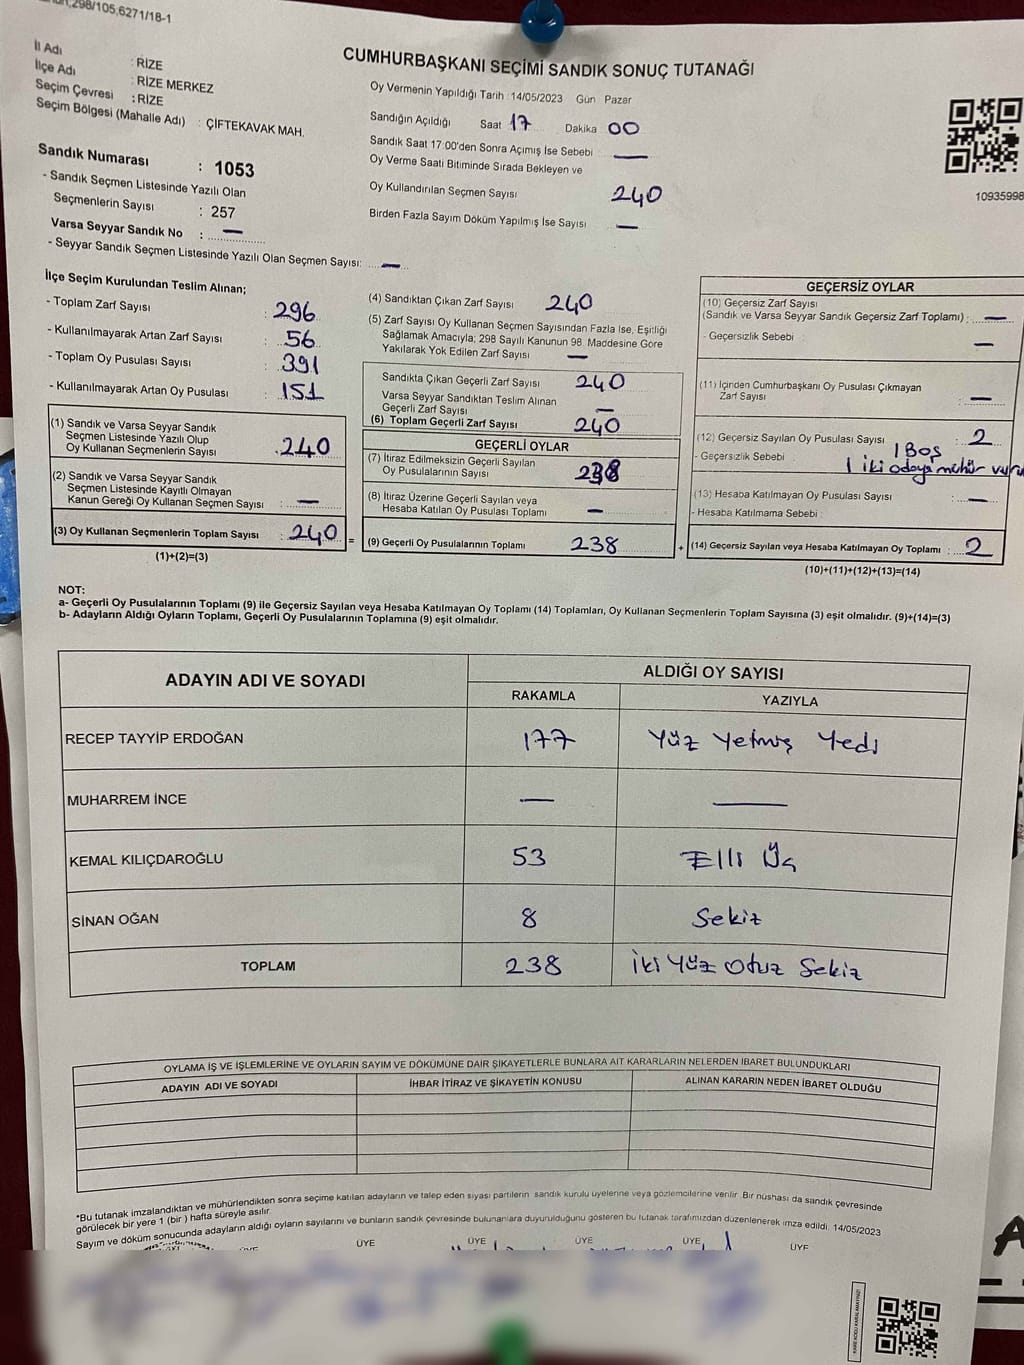 298/105,6271/18-1
CUMHURBAŞKANI SEÇİMİ SANDIK SONUÇ TUTANAĞI
İl Adı : RİZE
İlçe Adı : RİZE MERKEZ
Seçim Çevresi : RİZE
Seçim Bölgesi (Mahalle Adı) : ÇİFTEKAVAK MAH.
Sandık Numarası : 1053
- Sandık Seçmen Listesinde Yazılı Olan
Seçmenlerin Sayısı : 257
Varsa Seyyar Sandık No : —
- Seyyar Sandık Seçmen Listesinde Yazılı Olan Seçmen Sayısı: —
Oy Vermenin Yapıldığı Tarih : 14/05/2023 Gün Pazar
Sandığın Açıldığı Saat 17 Dakika 00
Sandık Saat 17:00'den Sonra Açımış İse Sebebi —
Oy Verme Saati Bitiminde Sırada Bekleyen ve
Oy Kullandırılan Seçmen Sayısı 240
Birden Fazla Sayım Döküm Yapılmış İse Sayısı —
10935998
İlçe Seçim Kurulundan Teslim Alınan;
- Toplam Zarf Sayısı : 296
- Kullanılmayarak Artan Zarf Sayısı : 56
- Toplam Oy Pusulası Sayısı : 391
- Kullanılmayarak Artan Oy Pusulası : 151
(1) Sandık ve Varsa Seyyar Sandık
Seçmen Listesinde Yazılı Olup
Oy Kullanan Seçmenlerin Sayısı : 240
(2) Sandık ve Varsa Seyyar Sandık
Seçmen Listesinde Kayıtlı Olmayan
Kanun Gereği Oy Kullanan Seçmen Sayısı : —
(3) Oy Kullanan Seçmenlerin Toplam Sayısı : 240 =
(1)+(2)=(3)
(4) Sandıktan Çıkan Zarf Sayısı 240
(5) Zarf Sayısı Oy Kullanan Seçmen Sayısından Fazla İse, Eşitliği
Sağlamak Amacıyla; 298 Sayılı Kanunun 98. Maddesine Göre
Yakılarak Yok Edilen Zarf Sayısı —
Sandıkta Çıkan Geçerli Zarf Sayısı 240
Varsa Seyyar Sandıktan Teslim Alınan
Geçerli Zarf Sayısı —
(6) Toplam Geçerli Zarf Sayısı 240
GEÇERLİ OYLAR
(7) İtiraz Edilmeksizin Geçerli Sayılan
Oy Pusulalarının Sayısı 238
(8) İtiraz Üzerine Geçerli Sayılan veya
Hesaba Katılan Oy Pusulası Toplamı —
(9) Geçerli Oy Pusulalarının Toplamı 238 +
GEÇERSİZ OYLAR
(10) Geçersiz Zarf Sayısı
(Sandık ve Varsa Seyyar Sandık Geçersiz Zarf Toplamı) : —
- Geçersizlik Sebebi : —
(11) İçinden Cumhurbaşkanı Oy Pusulası Çıkmayan
Zarf Sayısı : —
(12) Geçersiz Sayılan Oy Pusulası Sayısı : 2
- Geçersizlik Sebebi : 1 Boş
1 iki adaya mühür
(13) Hesaba Katılmayan Oy Pusulası Sayısı : —
- Hesaba Katılmama Sebebi :
(14) Geçersiz Sayılan veya Hesaba Katılmayan Oy Toplamı : 2
(10)+(11)+(12)+(13)=(14)
NOT:
a- Geçerli Oy Pusulalarının Toplamı (9) ile Geçersiz Sayılan veya Hesaba Katılmayan Oy Toplamı (14) Toplamları, Oy Kullanan Seçmenlerin Toplam Sayısına (3) eşit olmalıdır. (9)+(14)=(3)
b- Adayların Aldığı Oyların Toplamı, Geçerli Oy Pusulalarının Toplamına (9) eşit olmalıdır.
ADAYIN ADI VE SOYADI ALDIĞI OY SAYISI
RAKAMLA YAZIYLA
RECEP TAYYİP ERDOĞAN 177 Yüz Yetmiş Yedi
MUHARREM İNCE — —
KEMAL KILIÇDAROĞLU 53 Elli Üç
SİNAN OĞAN 8 Sekiz
TOPLAM 238 İki Yüz Otuz Sekiz
OYLAMA İŞ VE İŞLEMLERİNE VE OYLARIN SAYIM VE DÖKÜMÜNE DAİR ŞİKAYETLERLE BUNLARA AİT KARARLARIN NELERDEN İBARET BULUNDUKLARI
ADAYIN ADI VE SOYADI İHBAR İTİRAZ VE ŞİKAYETİN KONUSU ALINAN KARARIN NEDEN İBARET OLDUĞU
*Bu tutanak imzalandıktan ve mühürlendikten sonra seçime katılan adayların ve talep eden siyasi partilerin sandık kurulu üyelerine veya gözlemcilerine verilir. Bir nüshası da sandık çevresinde
görülecek bir yere 1 (bir) hafta süreyle asılır.
Sayım ve döküm sonucunda adayların aldığı oyların sayılarını ve bunların sandık çevresinde bulunanlara duyurulduğunu gösteren bu tutanak tarafımızdan düzenlenerek imza edildi. 14/05/2023
ÜYE ÜYE ÜYE ÜYE ÜYE ÜYE